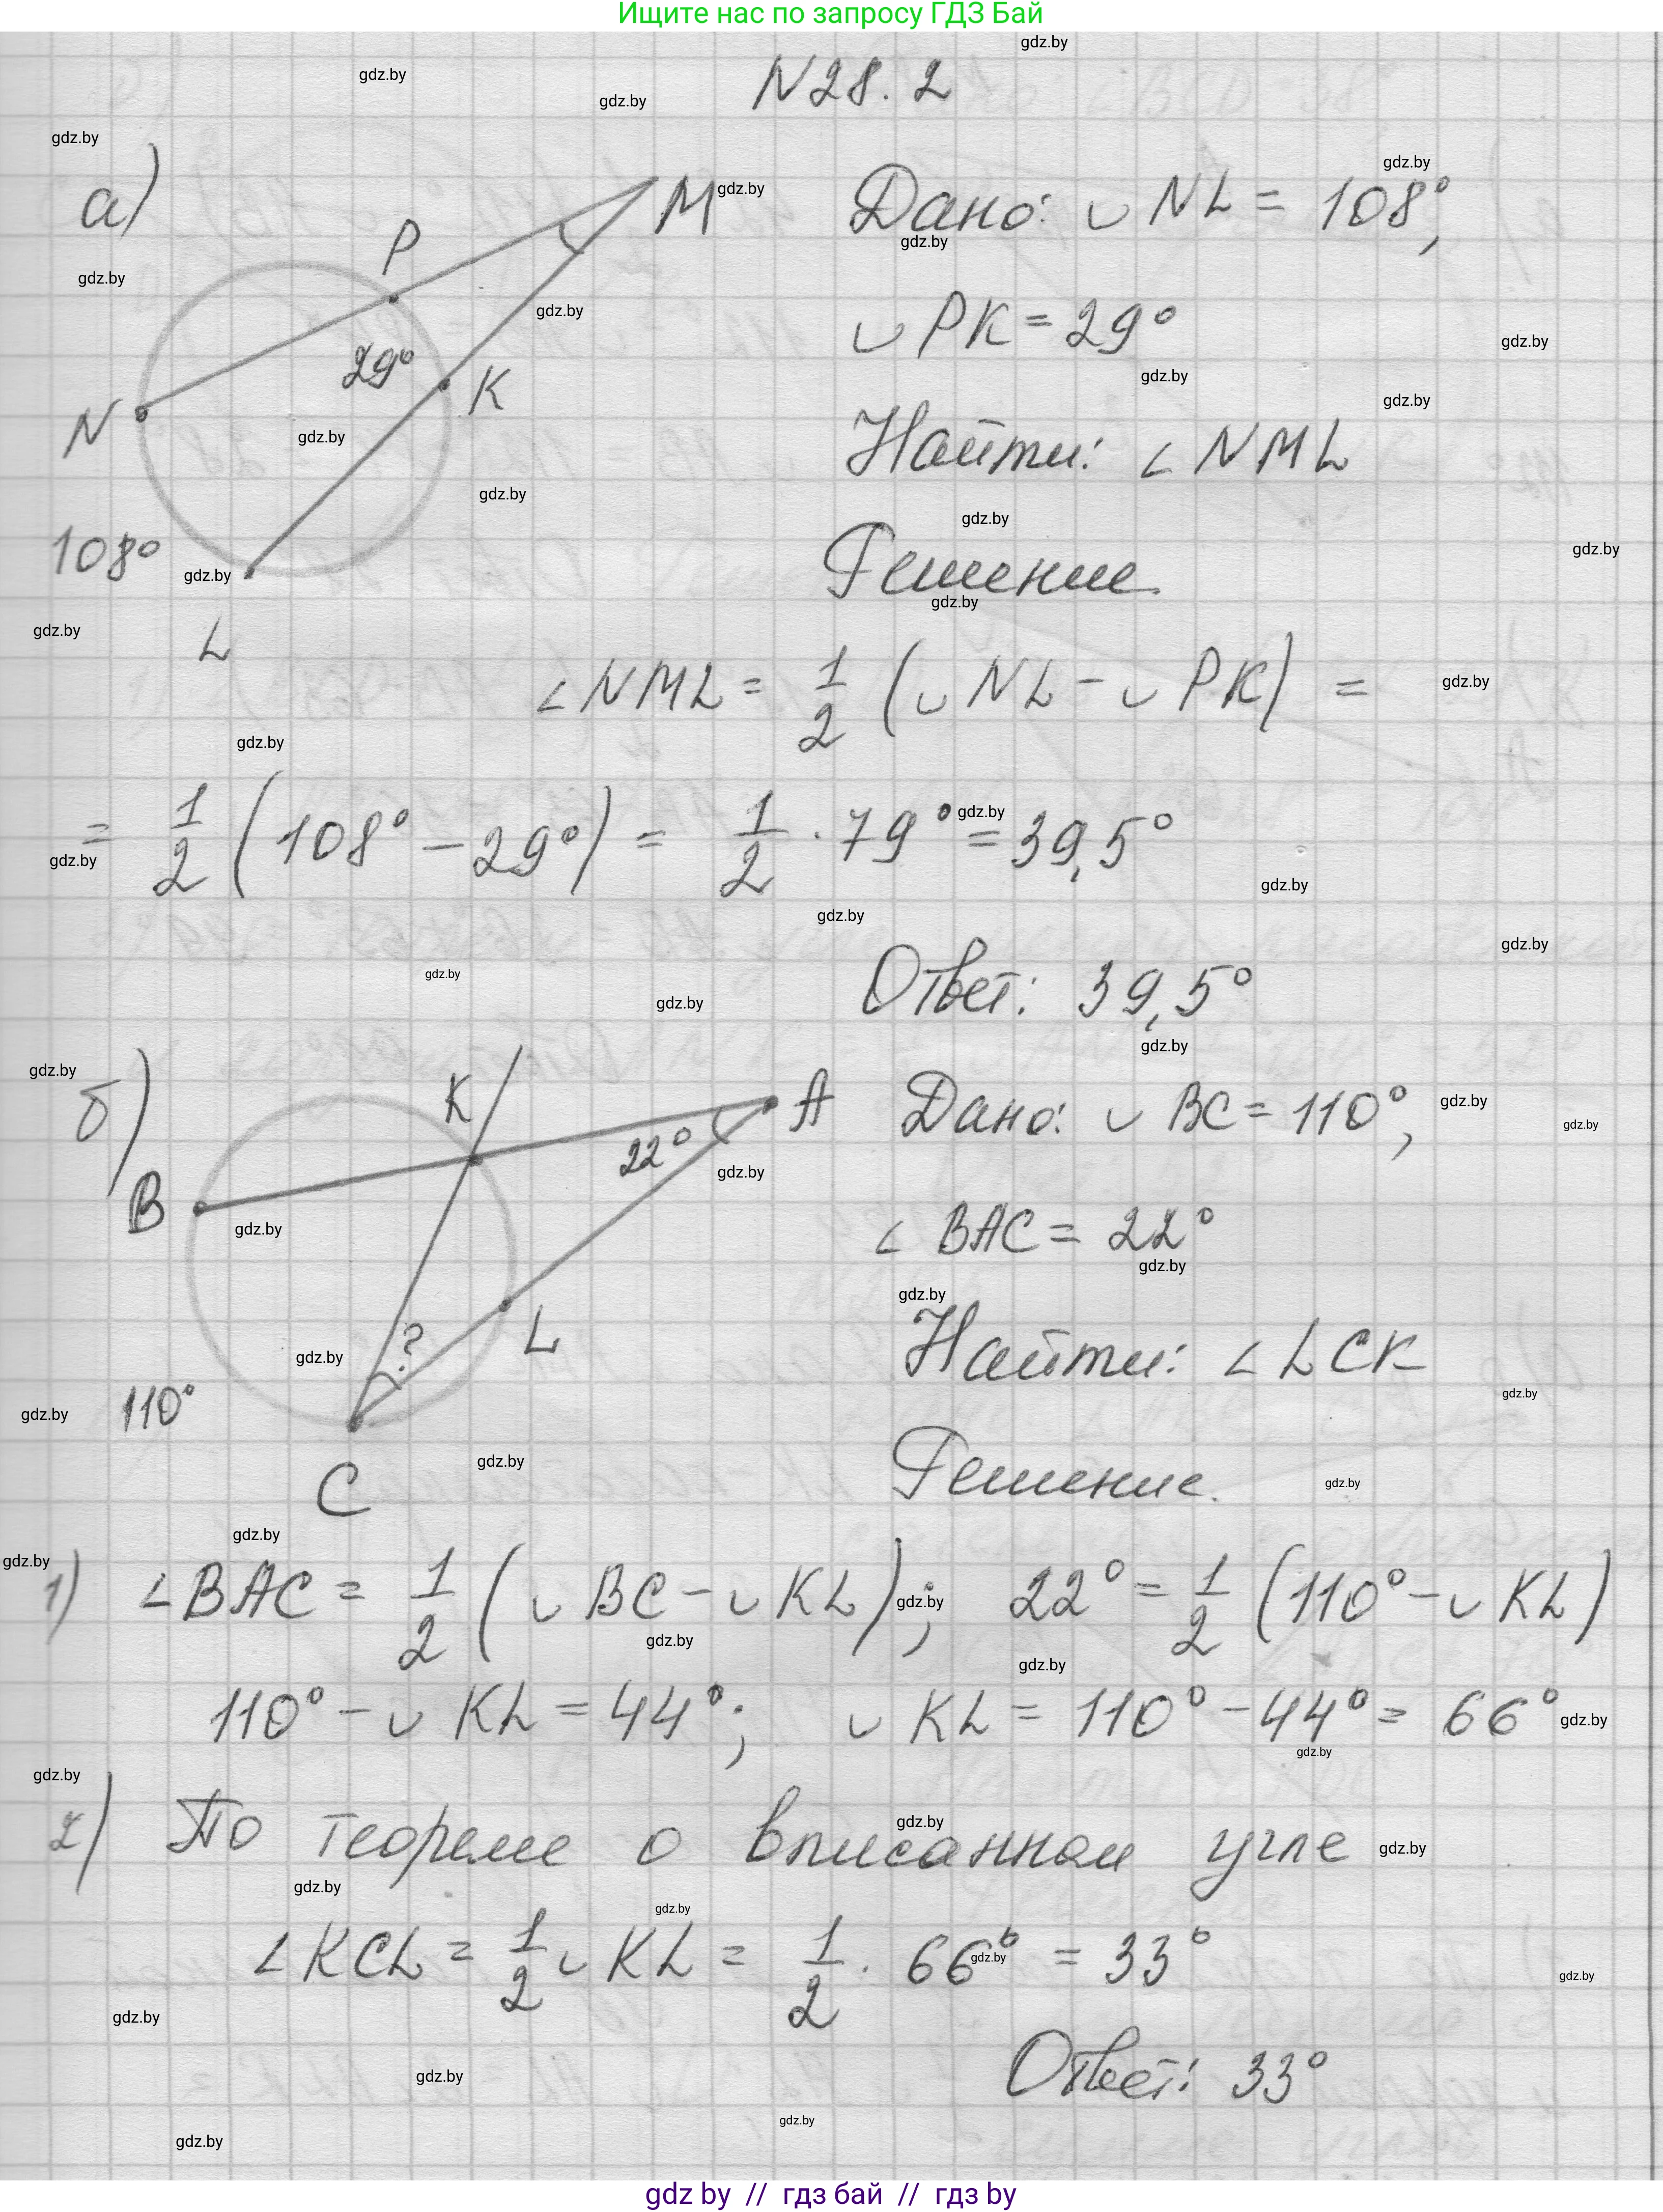 Ищите нас по запросу ГДЗ Бай
N28.2
а)
P
M
29°
K
N
108°
L
Дано: ◡ NL = 108°,
◡ PK = 29°
Найти: ∠ NML
Решение.
∠ NML = 1/2 (◡ NL - ◡ PK) =
= 1/2 (108° - 29°) = 1/2 · 79° = 39,5°
Ответ: 39,5°
б)
K
A
22°
B
L
?
110°
C
Дано: ◡ BC = 110°,
∠ BAC = 22°
Найти: ∠ LCK
Решение.
1) ∠ BAC = 1/2 (◡ BC - ◡ KL); 22° = 1/2 (110° - ◡ KL)
110° - ◡ KL = 44°; ◡ KL = 110° - 44° = 66°
2) По теореме о вписанном угле
∠ KCL = 1/2 ◡ KL = 1/2 · 66° = 33°
Ответ: 33°
gdz by // гдз бай // гдз by